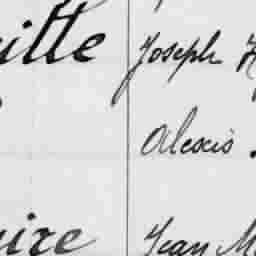 itte Joseph H
Alexis
ire Jean M